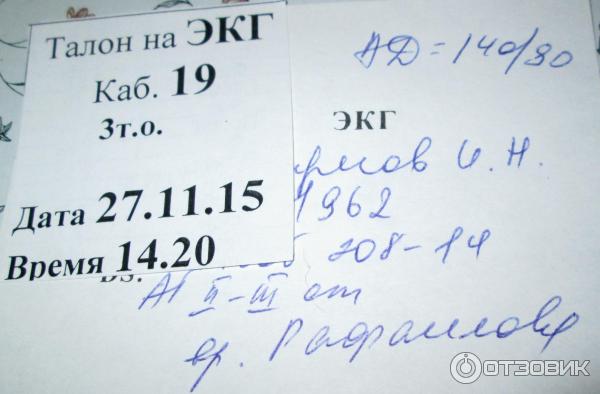 Талон на ЭКГ
Каб. 19
3т.о.
Дата 27.11.15
Время 14.20
АД = 140/90
ЭКГ
И. Н.
1962
208-14
АГ II-III ст
вр. Рафаилова
ОТЗОВИК